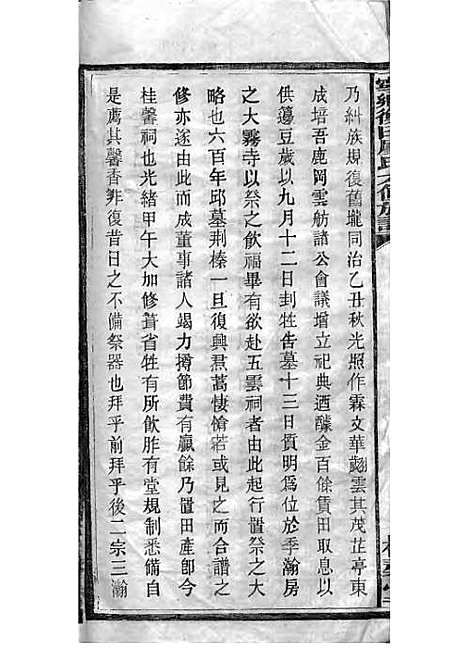 乃糾族規復舊壠同治乙丑秋光照作霖文華翽雲其茂芷亭東
成培吾鹿岡雲舫諸公會議增立祀典酒醵金百餘賃田取息以
供籩豆歲以九月十二日刲牲告墓十三日質明爲位於季瀚房
之大霧寺以祭之飲福畢有欲赴五雲祠者由此起行置祭之大
略也六百年邱墓荆榛一旦復興焄蒿悽愴若或見之合譜之
修亦遂由而成董事諸人竭力撙節費有贏餘乃置田產卽今
桂馨祠也光緒甲午大加修葺省牲有所飲胙有堂規制悉備自
是薦其馨香非復昔日之不備祭器也拜乎前拜乎後二宗三瀚